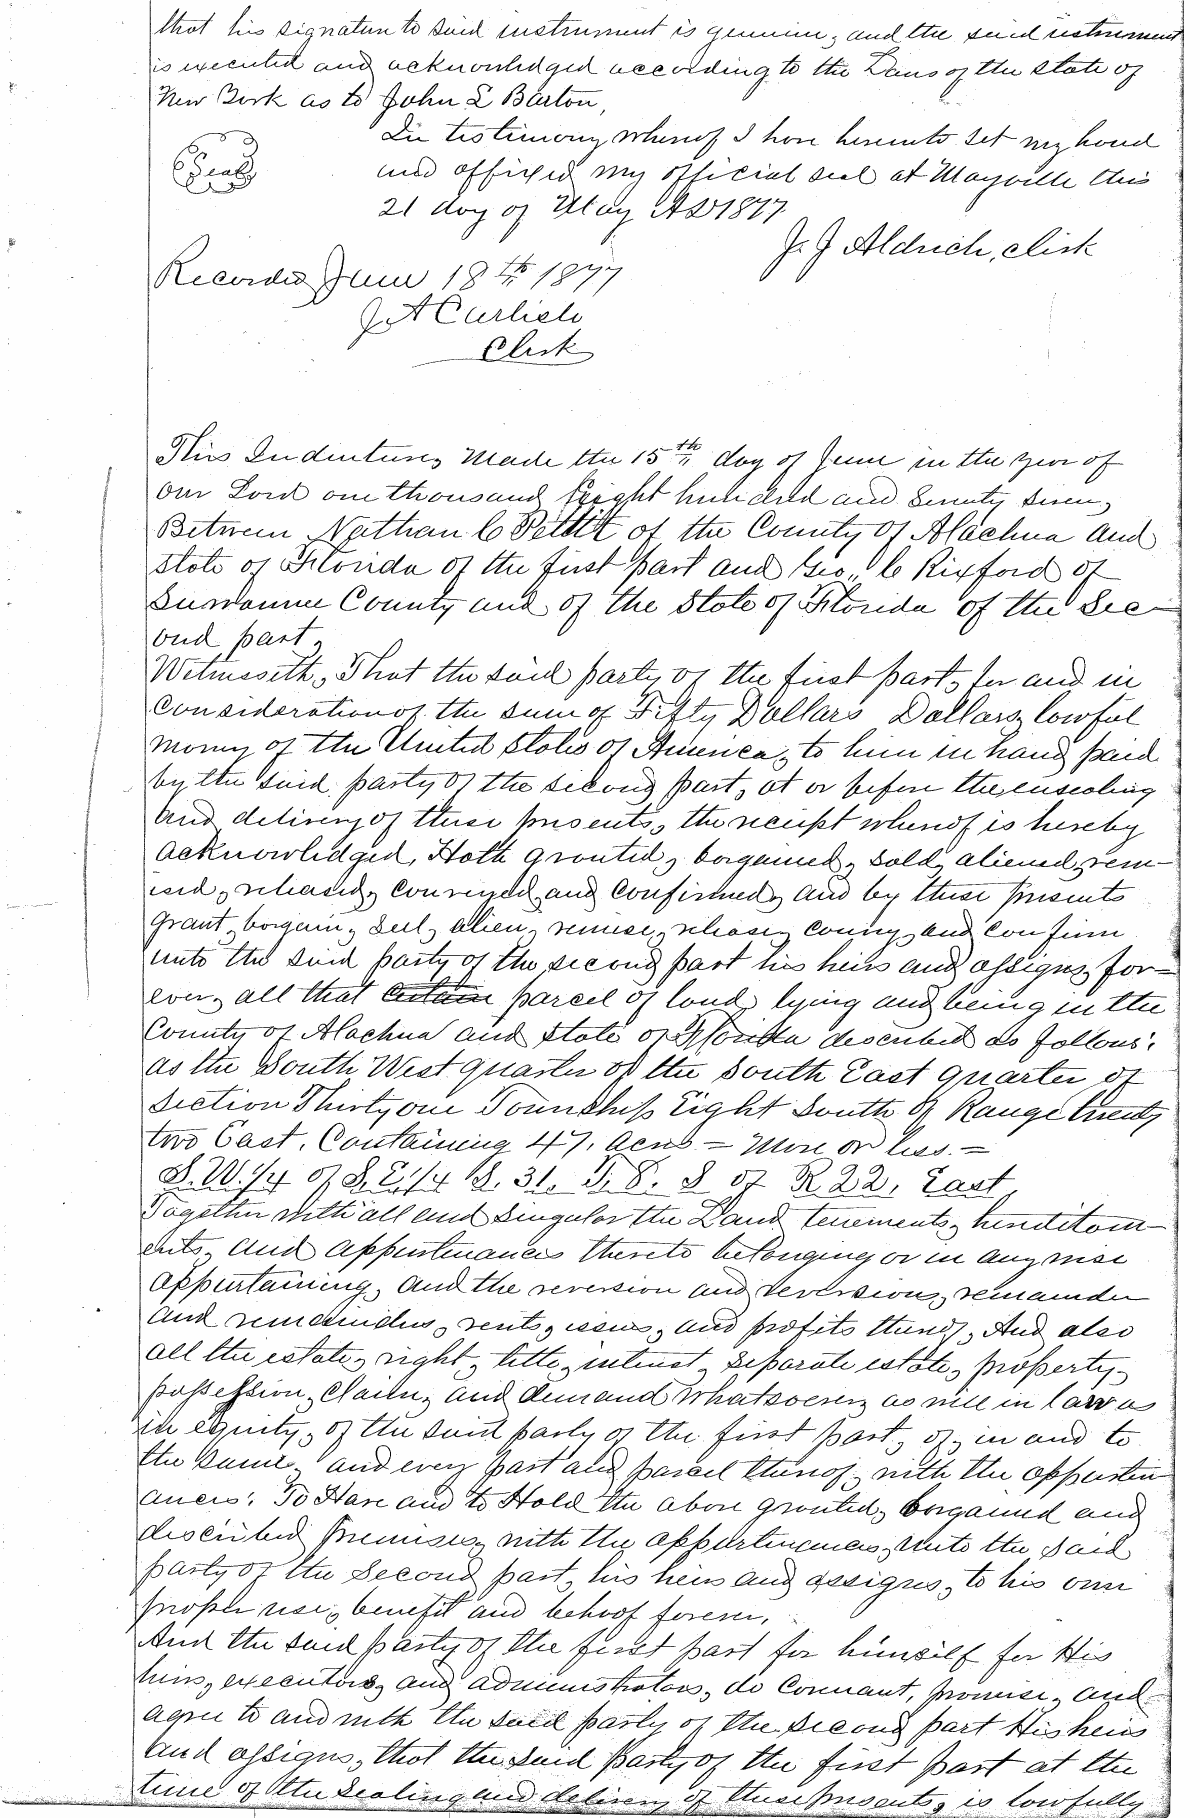 that his signature to said instrument is genuine, and the said instrument
is executed and acknowledged according to the Laws of the State of
New York as to John L Barton,
In testimony whereof I have hereunto set my hand
and affixed my official seal at Mayville this
21 day of May AD 1877
(Seal)
J. J Aldrich, clerk
Recorded June 18th 1877
J A Carlisle
Clerk
This Indenture, Made the 15th, day of June in the year of
our Lord one thousand Eight hundred and Seventy Seven,
Between Nathan C Pettit of the County of Alachua and
State of Florida of the first part and Geo, C Rixford of
Suwannee County and of the State of Florida of the Sec-
ond part,
Witnesseth, That the said party of the first part, for and in
consideration of the sum of Fifty Dollars Dollars, lawful
money of the United States of America, to him in hand paid
by the said party of the second part, at or before the ensealing
and delivery of these presents, the receipt whereof is hereby
acknowledged, Hath granted, bargained, sold, aliened, rem-
ised, released, conveyed, and confirmed, and by these presents
grant, bargain, sell, alien, remise, release, convey, and confirm
unto the said party of the second part his heirs and assigns, for-
ever, all that certain parcel of land, lying and being in the
County of Alachua and State of Florida described as follows:
as the South West quarter of the South East quarter of
Section Thirty one Township Eight South of Range twenty
two East. Containing 47. acres = More or less. =
S. W. 1/4 of S. E. 1/4 S. 31. T. 8. S of R. 22. East,
Together with all and singular the Land tenements, hereditam-
ents, and appurtenances thereto belonging or in any wise
appertaining, and the reversion and reversions, remainder
and remainders, rents, issues, and profits thereof, And also
all the estate, right, title, interest, separate estate, property,
possession, claim, and demand whatsoever, as well in law as
in equity, of the said party of the first part, of, in and to
the same, and every part and parcel thereof, with the appurten
ances: To Have and to Hold the above granted, bargained and
described premises, with the appurtenances, unto the said
party of the second part, his heirs and assigns, to his own
proper use, benefit and behoof forever,
And the said party of the first part for himself for His
heirs, executors, and administrators, do covenant, promise, and
agree to and with the said party of the second part His heirs
and assigns, that the said party of the first part at the
time of the sealing and delivery of these presents, is lawfully